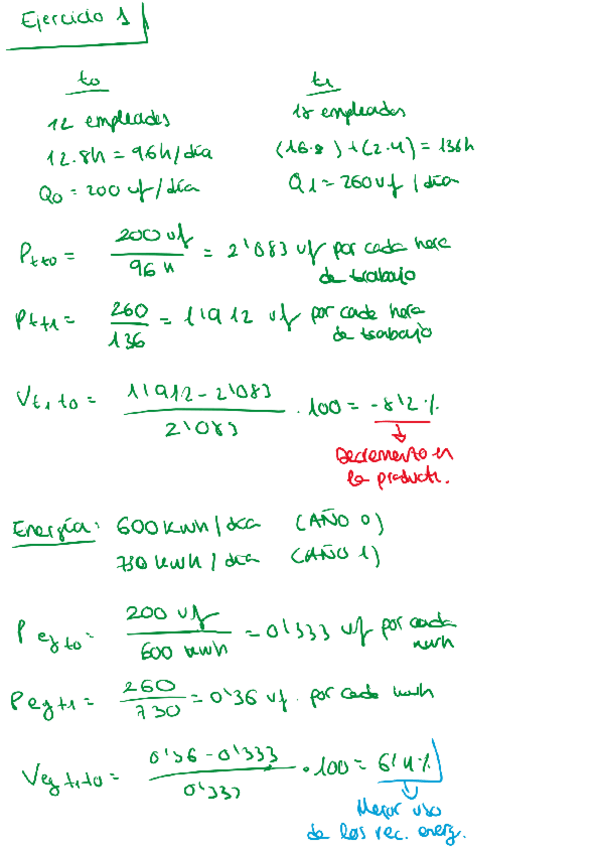 Ejercicio 1
to t1
12 empleados 18 empleados
12.8h = 96h/día (16.8) + (2.4) = 136h
Q0 = 200 uf/día Q1 = 260 uf/día
Pt,t0 = 200 uf / 96 h = 2'083 uf por cada hora
de trabajo
Pt,t1 = 260 / 136 = 1'912 uf por cada hora
de trabajo
Vt1,t0 = 1'912 - 2'083 / 2'083 . 100 = -8'2 %
Decremento en
la producti.
Energía: 600 kwh/día (AÑO 0)
730 kwh/día (AÑO 1)
Peg t0 = 200 uf / 600 kwh = 0'333 uf por cada
kwh
Peg t1 = 260 / 730 = 0'36 uf. por cada kwh
Veg t1,t0 = 0'36 - 0'333 / 0'333 . 100 = 6'4 %
Mejor uso
de los rec. energ.